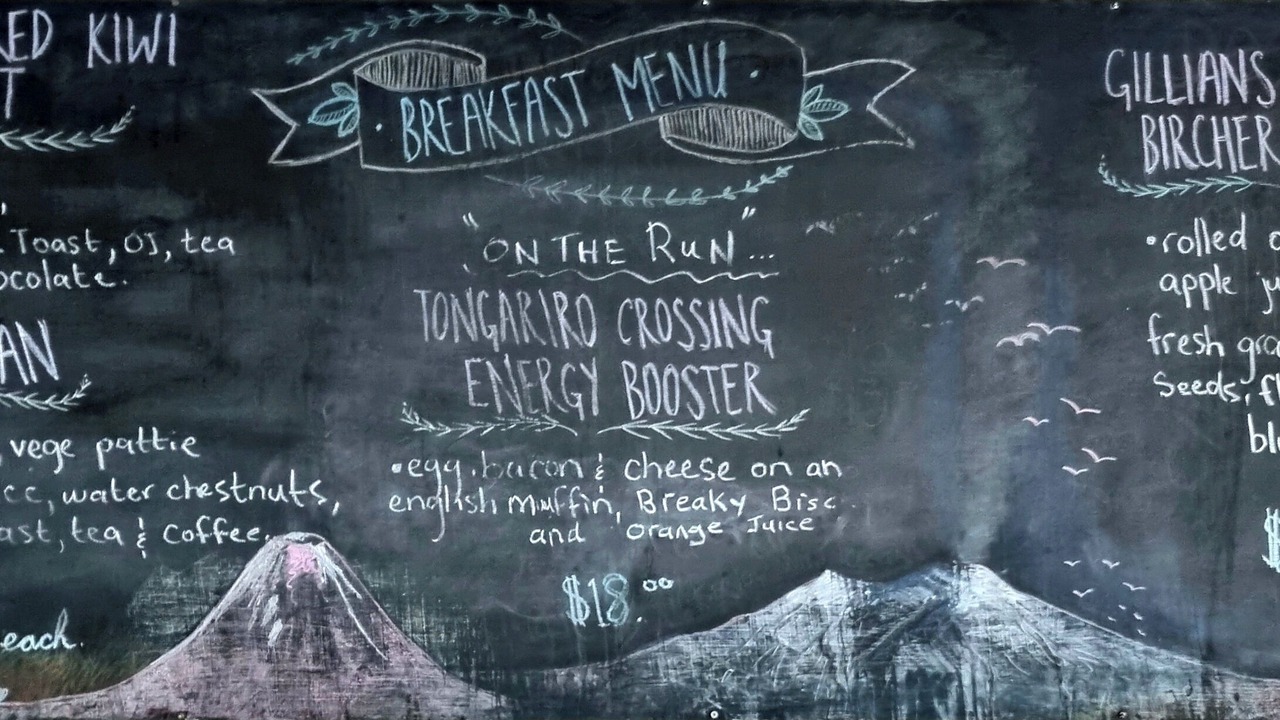 KIWI
T
Toast, OJ, tea
AN
vege pattie
water chestnuts,
tea & coffee.
each.
BREAKFAST MENU
"ON THE RUN"...
TONGARIRO CROSSING
ENERGY BOOSTER
•egg, bacon & cheese on an
english muffin, Breaky Bisc
and orange Juice
$18.00
GILLIANS
BIRCHER
•rolled
apple
fresh
Seeds,
$